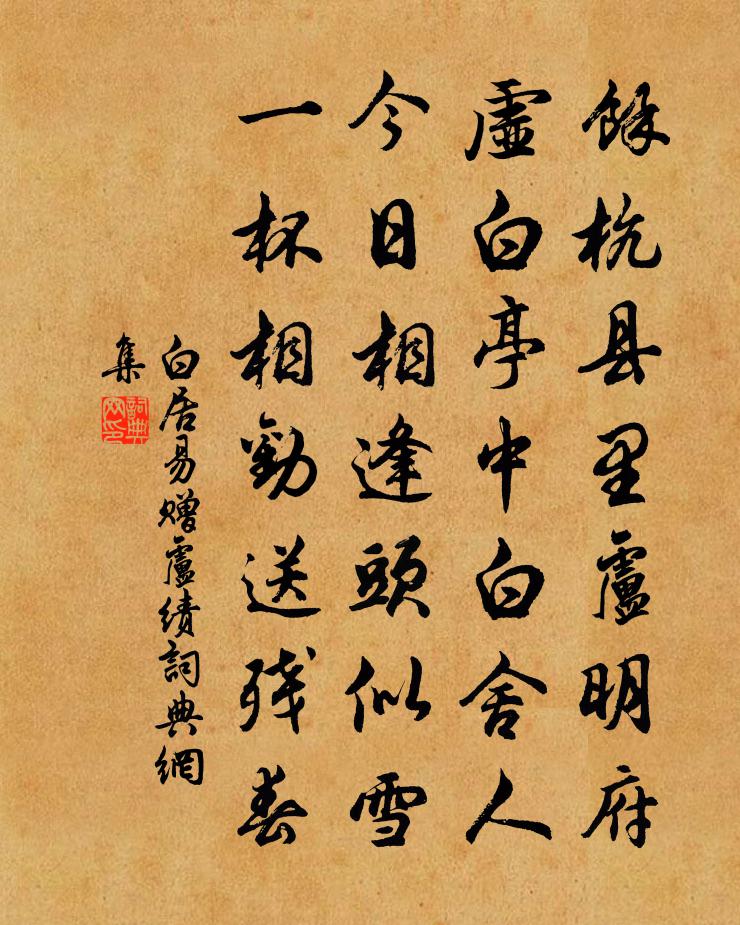 餘杭县里盧明府
虛白亭中白舍人
今日相逢頭似雪
一杯相勸送残春
白居易赠盧績詞典網
集
詞典
网印